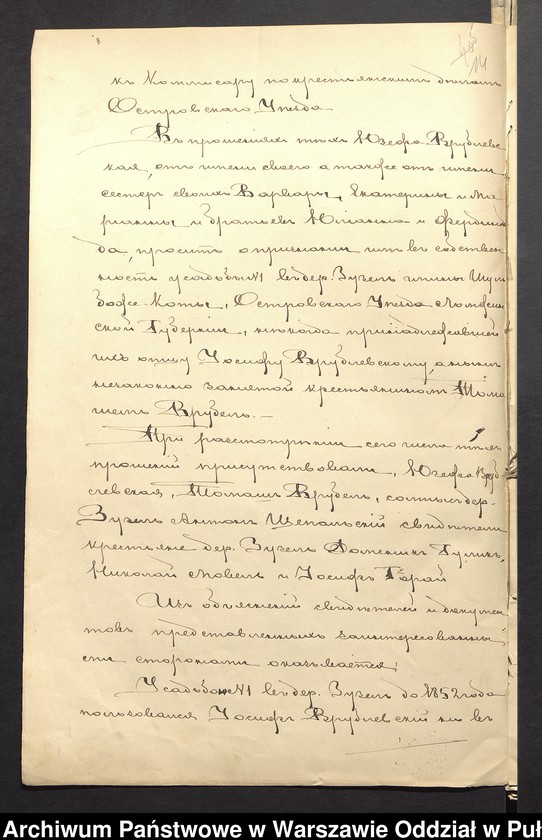 14
къ Коммисару по крестьянскимъ дѣламъ
Островскаго Уѣзда
Въ прошенiяхъ Юзефа Врублев
ская, отъ имени своего а также отъ имени
сестеръ своихъ Варвары, Екатерины и Ма
рiанны и братьевъ Юлiана и Фердинан
да, проситъ о признанiи имъ въ собствен
ность усадьбы №1 въ дер. Зузель гмины Шуль
боже-Коты, Островскаго Уѣзда Ломжин
ской Губернiи, никогда принадлежавшей
ихъ отцу Iосифу Врублевскому, а нынѣ
незаконно занятой крестьяниномъ Тома
шемъ Врубель.—
При разсмотрѣнiи сего числа
прошенiй присутствовали, Юзефа Вруб
левская, Томашъ Врубель, солтысъ дер.
Зузель Антонъ Щепаньскiй свидѣтели
крестьяне дер. Зузель Доминикъ Гуликъ,
Николай и Iосифъ Гарай
Изъ объясненiй свидѣтелей и докумен
товъ представленныхъ заинтересованны
ми сторонами оказывается:
Усадьбою №1 въ дер. Зузель до 1852 года
пользовался Iосифъ Врублевскiй
Archiwum Państwowe w Warszawie Oddział w Puł